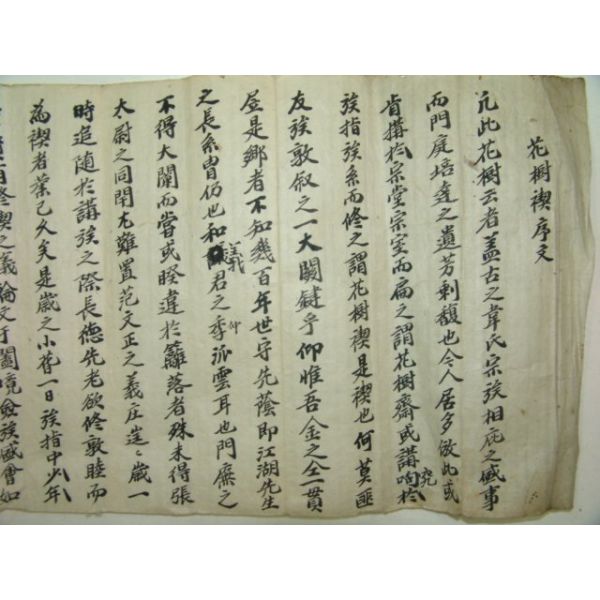 花樹禊序文
凡此花樹云者盖古之韋氏宗族相庇之盛事
而門庭培達之遺芳剩馥也令人居多倣此或
肯搆於宗堂宗室而扁之謂花樹齋或講究於
族指族系而修之謂花樹禊是禊也何莫匪
友族敦叙之一大關鍵乎仰惟吾金之全一貫
居是鄕者不知幾百年世守先蔭即江湖先生
之長系冑仍也和義君之季仰派雲耳也門廡之
不得大闡而當或暌違於籬落者殊未得張
太尉之同閈尤難置范文正之義庄迬〻歲一
時追随於講族之際長德先老欲修敦睦而
為禊者葉已久矣是歲之小春一日族指中少年
修禊之義論文于閣 族盛會如